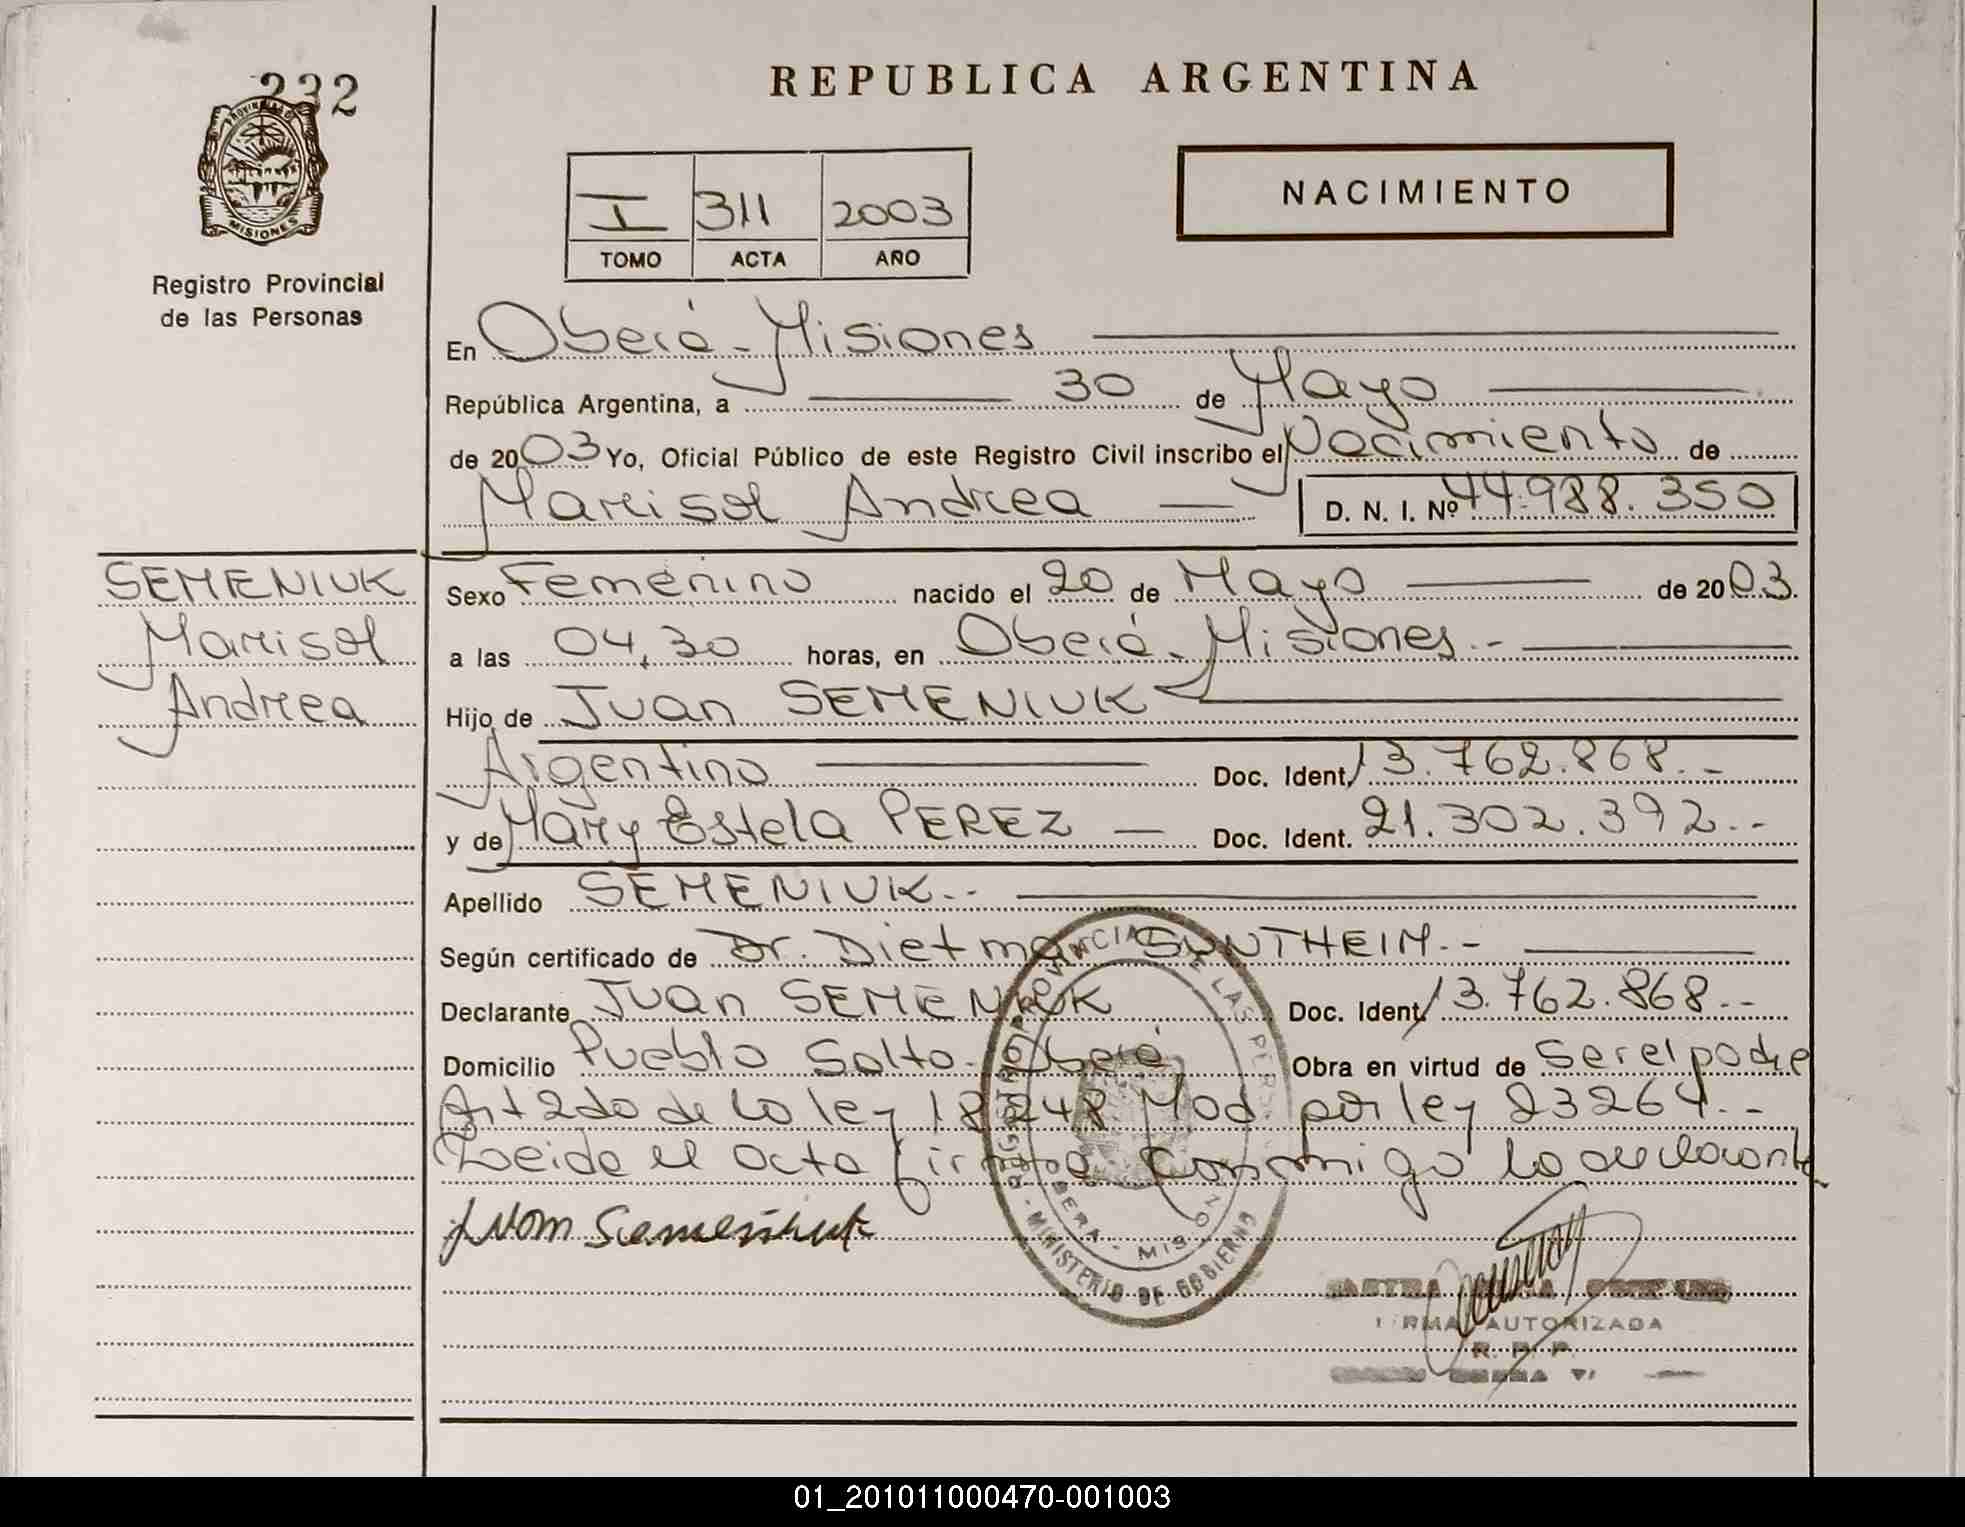 232
PROVINCIA DE
MISIONES
Registro Provincial
de las Personas
REPUBLICA ARGENTINA
I 311 2003
TOMO ACTA AÑO
NACIMIENTO
En Oberá - Misiones
República Argentina, a 30 de Mayo
de 2003 Yo, Oficial Público de este Registro Civil inscribo el Nacimiento de
Marisol Andrea D. N. I. Nº 44.988.350
SEMENIUK
Marisol
Andrea
Sexo Femenino nacido el 20 de Mayo de 2003.
a las 04,30 horas, en Oberá - Misiones.-
Hijo de Juan SEMENIUK
Argentino Doc. Ident. 13.762.868.-
y de Mary Estela PEREZ Doc. Ident. 21.302.392.-
Apellido SEMENIUK.-
Según certificado de Dr. Dietmar SUNTHEIM.-
Declarante Juan SEMENIUK Doc. Ident. 13.762.868.-
Domicilio Pueblo Salto - Oberá Obra en virtud de Ser el padre
Art 2do de la ley 18248 Mod. por ley 23264.-
Leida el acta firma conmigo la declarante
Juan Semeniuk
REGISTRO PROVINCIAL DE LAS PERSONAS
OBERA - MISIONES
- MINISTERIO DE GOBIERNO
FIRMA AUTORIZADA
R. P. P.
01_201011000470-001003